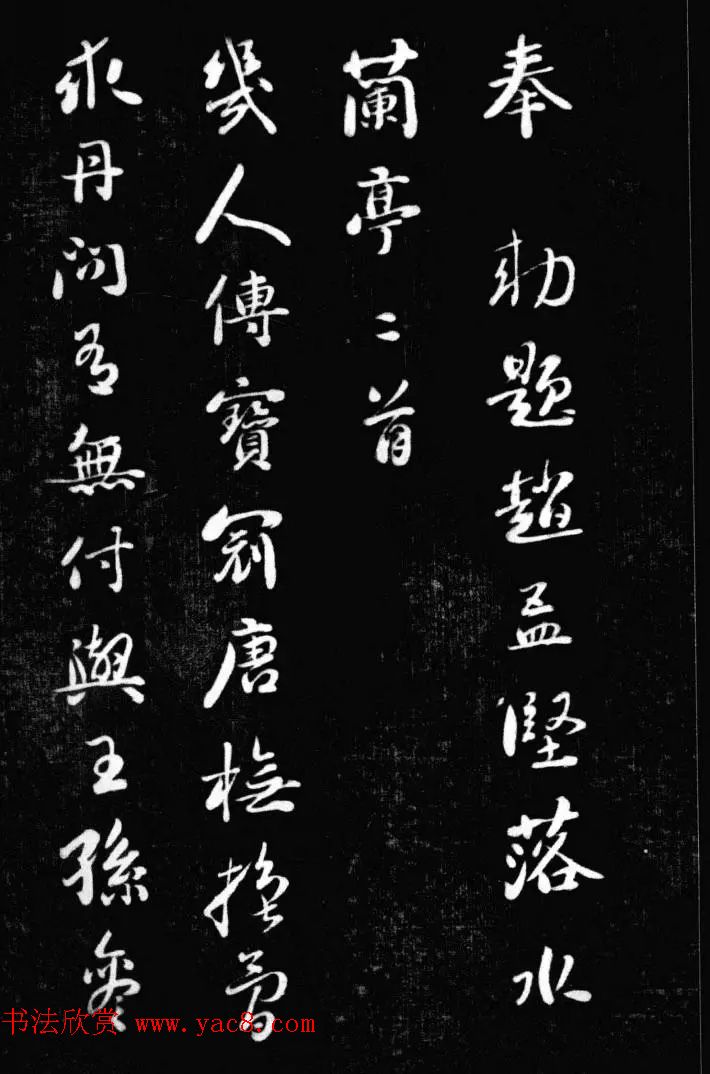 奉 勅題趙孟堅落水
蘭亭二首
幾人傳寶冠唐橅換骨
求丹問有無付與王孫參
书法欣赏 www.yac8.com